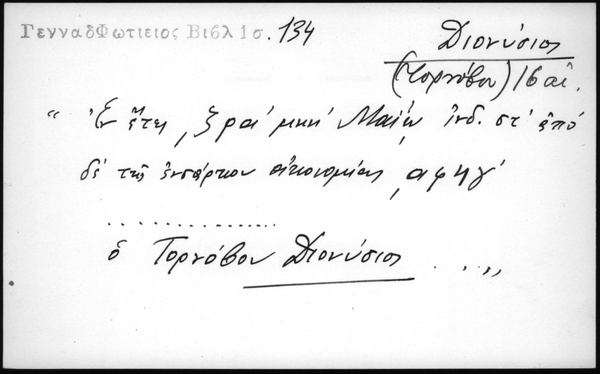 ΓενναδΦωτιειος Βιβλ 1σ. 134
Διονύσιος
(Τορνόβου) 16 αἰ.
“ Ἐν ἔτει ͵ζραʹ μηνὶ Μαΐῳ ἰνδ. στʹ ἀπό
δέ τῆς ἐνσάρκου οἰκονομίας ͵αφηγʹ
..............
ὁ Τορνόβου Διονύσιος ... ”